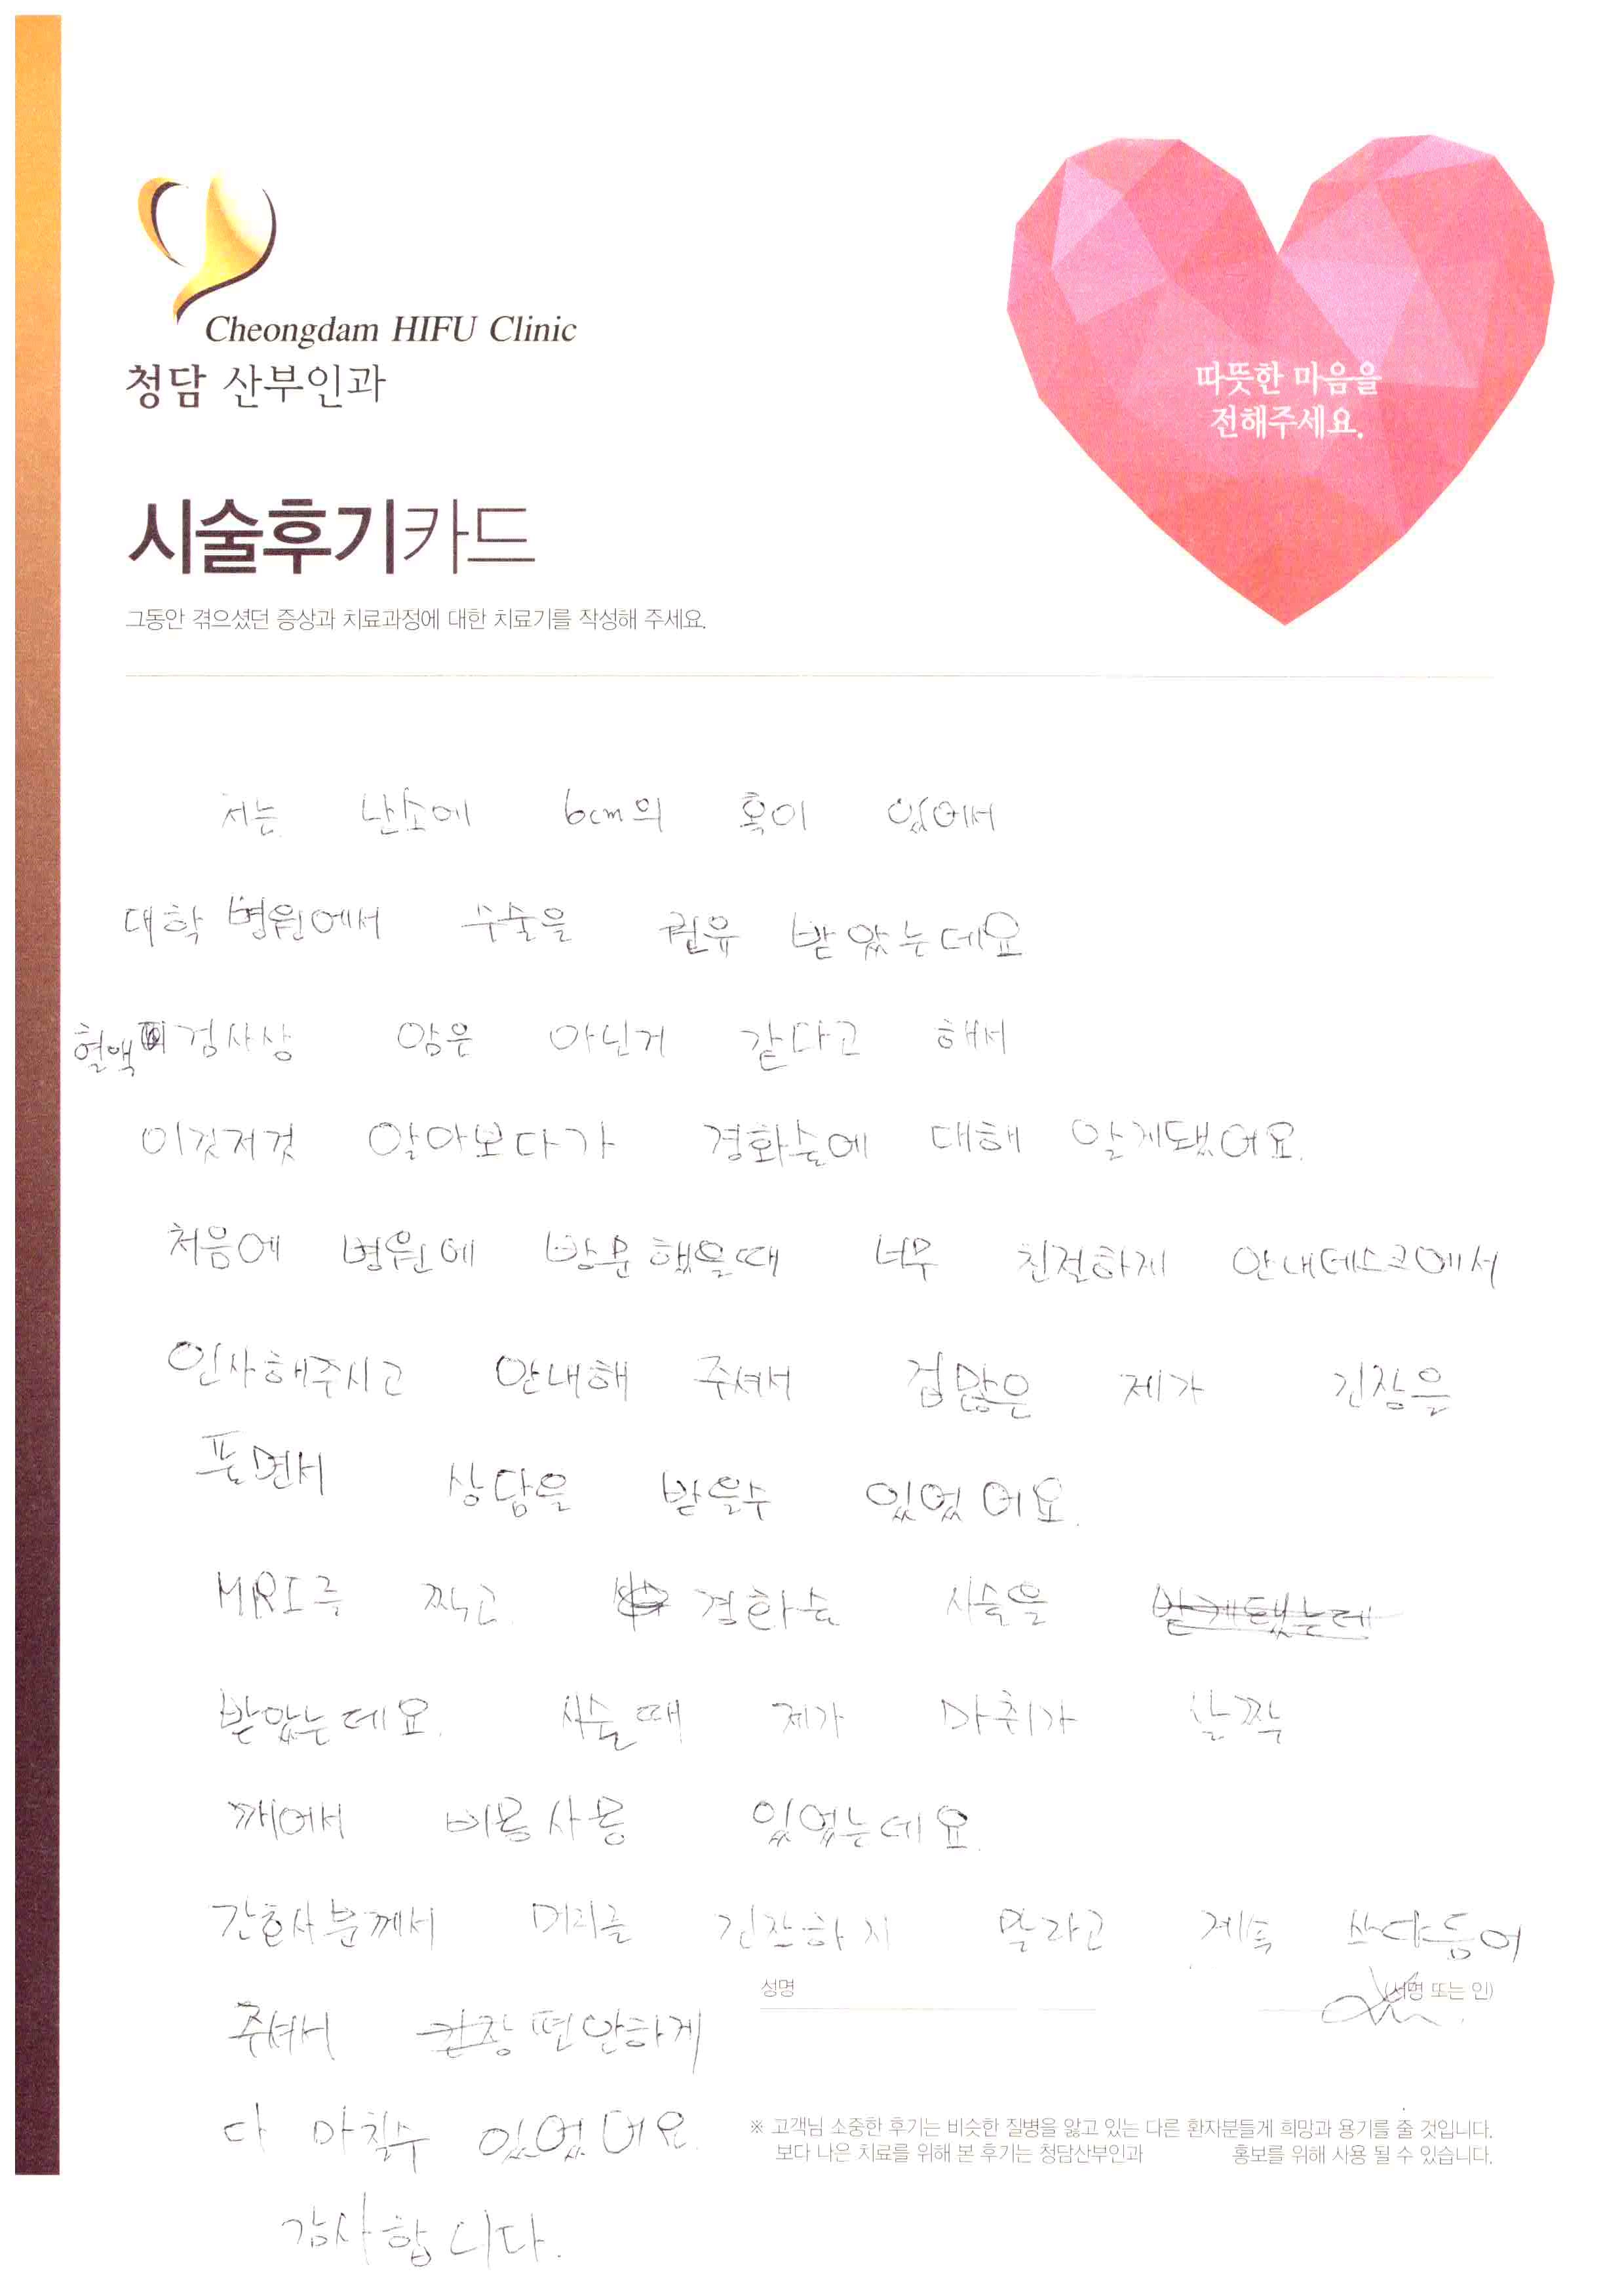 Cheongdam HIFU Clinic
청담 산부인과
따뜻한 마음을
전해주세요.
시술후기카드
그동안 겪으셨던 증상과 치료과정에 대한 치료기를 작성해 주세요.
저는 난소에 6cm의 혹이 있어서
대학병원에서 수술을 권유 받았는데요
혈액 검사상 암은 아닌거 같다고 해서
이것저것 알아보다가 경화술에 대해 알게됐어요.
처음에 병원에 방문했을때 너무 친절하게 안내데스크에서
인사해주시고 안내해 주셔서 겁많은 제가 긴장을
풀면서 상담을 받을수 있었어요.
MRI를 찍고 경화술 시술을 받게됐는데
받았는데요. 시술때 제가 마취가 살짝
깨어서 비몽사몽 있었는데요.
간호사분께서 머리를 긴장하지 말라고 계속 쓰다듬어
성명
(서명 또는 인)
주셔서 긴장 편안하게
다 마칠수 있었어요.
※ 고객님 소중한 후기는 비슷한 질병을 앓고 있는 다른 환자분들게 희망과 용기를 줄 것입니다.
보다 나은 치료를 위해 본 후기는 청담산부인과 홍보를 위해 사용 될 수 있습니다.
감사합니다.